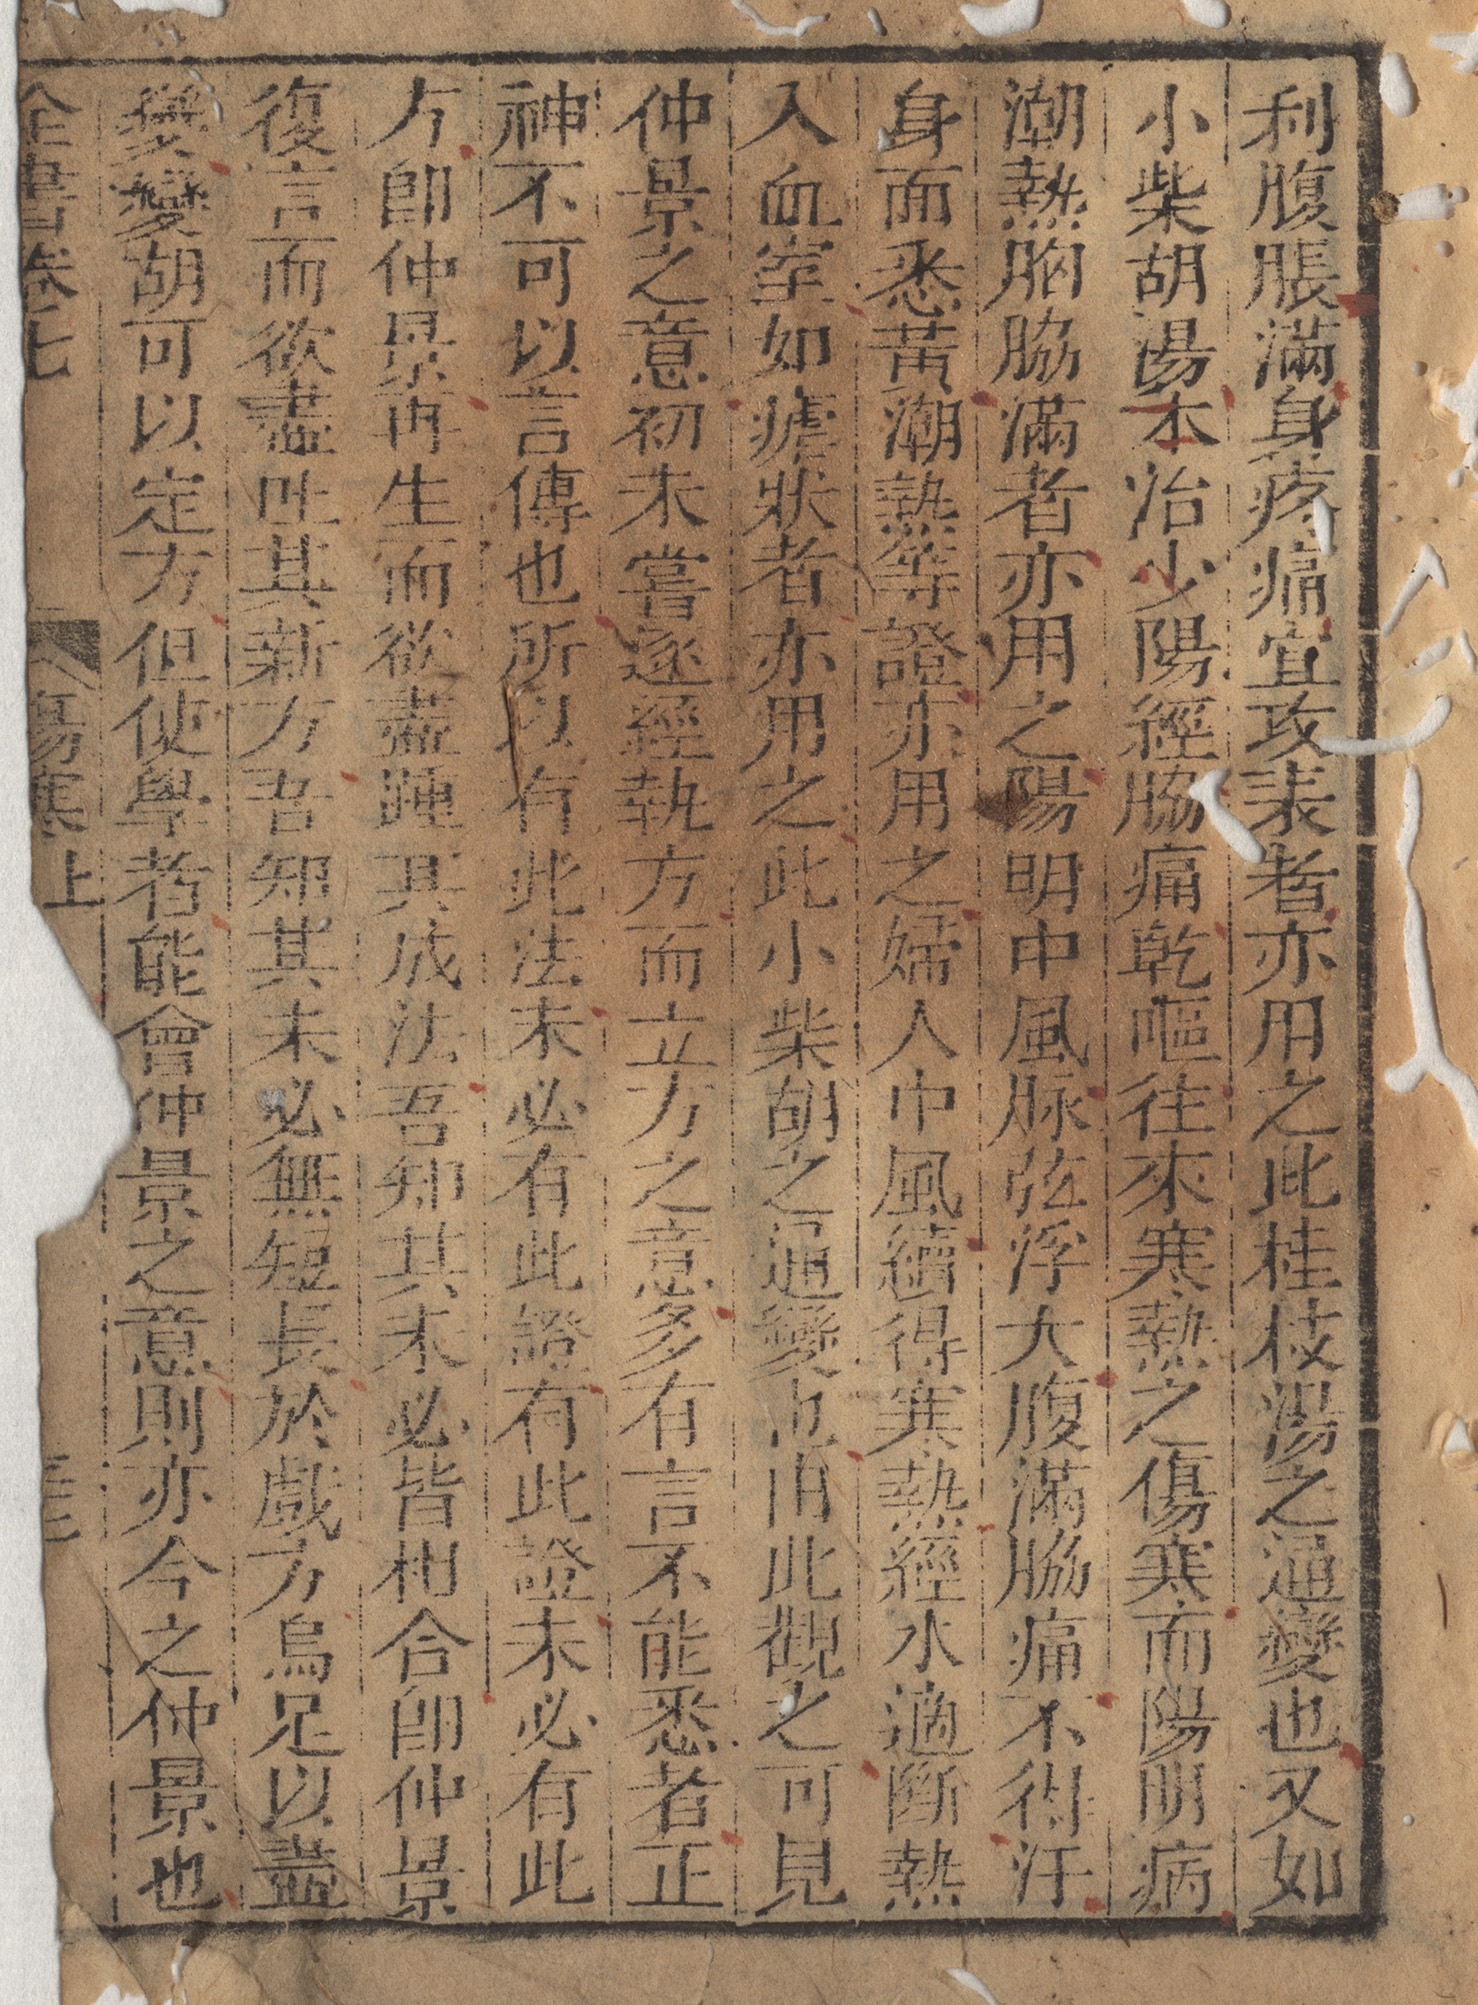 利腹脹滿身疼痛宜攻表者亦用之此桂枝湯之通變也又如
小柴胡湯本治少陽經脇痛乾嘔往來寒熱之傷寒而陽明病
潮熱胸脇滿者亦用之陽明中風脉弦浮大腹滿脇痛不得汗
身而悉黃潮熱等證亦用之婦人中風續得寒熱經水適斷熱
入血室如瘧狀者亦用之此小柴胡之通變也由此觀之可見
仲景之意初未嘗逐經執方而立方之意多有言不能悉者正
神不可以言傳也所以有此法未必有此證有此證未必有此
方卽仲景再生而欲盡踵其成法吾知其未必皆相合卽仲景
復言而欲盡吐其新方吾知其未必無短長於戲方烏足以盡
變變胡可以定方但使學者能會仲景之意則亦今之仲景也
全書卷七 傷寒上